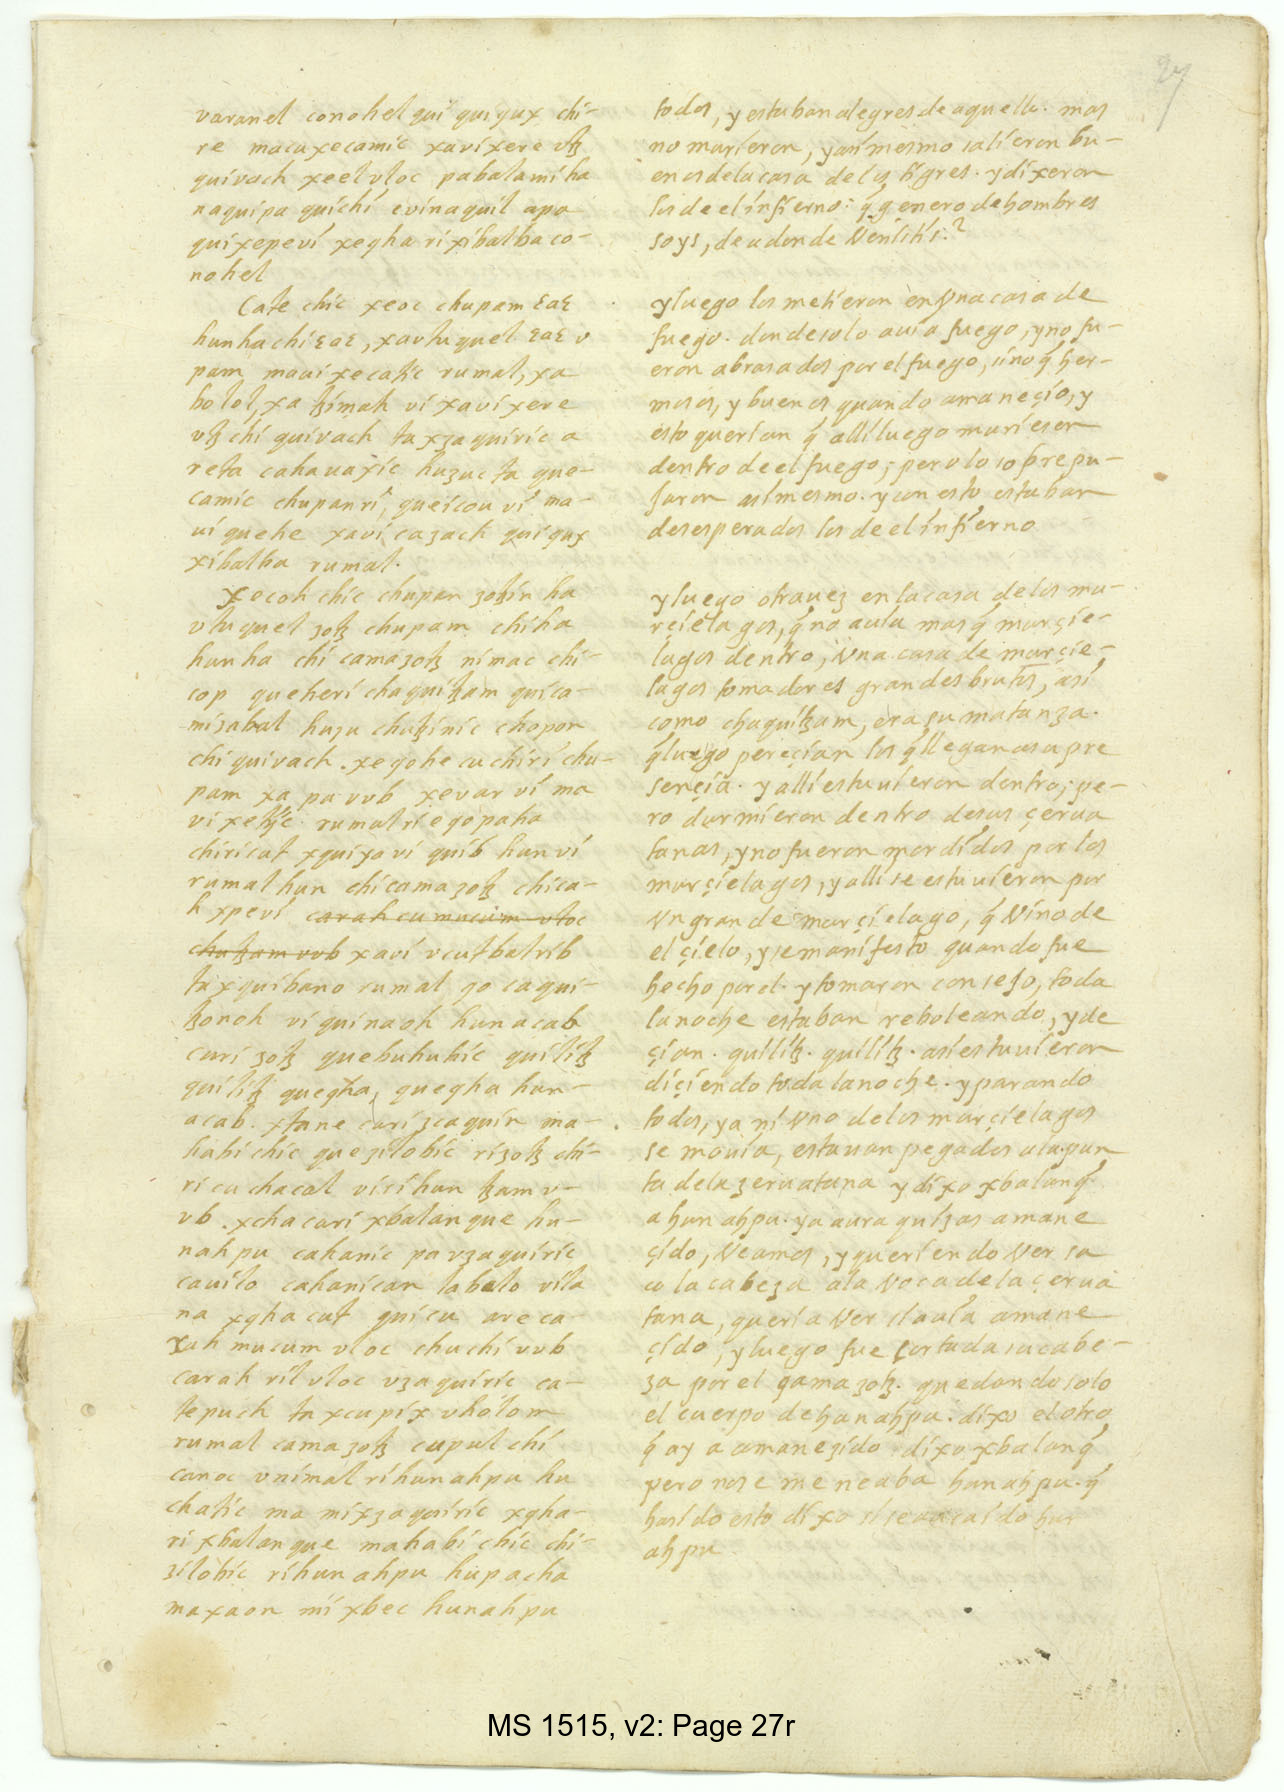 27
varanel conohel qui quiqux chi-
re macaxecamic xavixere vtz
quivach xeel vloc pabalamiha
naquipa quichi evinaquil apa
quixepevi xeqha ri xibalba co-
nohel
Cate chic xeoc chupam ɛaɛ
hunha chi ɛaɛ, xavtuquel ɛaɛ v
pam mavi xecatic rumal, xa
bolol, xa tzimah vi xavixere
vtz chi quivach ta xzaquiric a
reta cahavaxic huzucta que-
camic chupan ri, queicou vi ma-
vi quehe xavi cazach quiqux
xibalba rumal.
Xecoh chic chupan zotzin ha
vtuquel zotz chupam chiha
hunha chi camazotz nimac chi-
cop queheri chaquitzam quica-
mizabal huzu chutzinic chopon
chi quivach. xeqohe cu chiri chu-
pam xa pa vub xevar vi ma
vi xetiic rumal ri e qo paha
chiricut xquiyo vi quib hun vi
rumal hun chi camazotz chica-
h xpevi carah cu mucum vloc
chutzam vub xavi vcutbal rib
ta xquibano rumal qo ca qui-
tzonoh vi quinaoh hunacab
cari zotz quebuhuhic quilitz
quilitz queqha, queqha hun-
acab. xtane cari zcaquin ma-
habi chic quezilobic ri zotz chi-
ri cu chacal vi ri hun tzam v-
vb. xcha cari xbalanque hu-
nahpu cahanic pa vzaquiric
cavilo cahanican labelo vila
na xqhacut quicu are ca-
xah mucum vloc chuchi vub
carah ril vloc vzaquiric ca-
tepuch ta xcupix vholom
rumal camazotz cuput chi
canoc vnimal ri hunahpu hu
chalic ma mixzaquiric xqha-
ri xbalanque mahabi chic chi-
zilobic ri hunahpu hupacha
maxaon mi xbec hunahpu
todos, y estaban alegres de aquello. mas
no murieron, y asimesmo salieron bu-
enos de la casa de los tigres. y dixeron
los de el infierno: q̃ genero de hombres
soys, de adonde Venistis?
y luego los metieron en Vna casa de
fuego. donde solo auia fuego, y no fu-
eron abrasados por el fuego, sino q̃ her-
mosos, y buenos quando amaneçio, y
esto querian q̃ alli luego muriesen
dentro de el fuego; pero lo sobrepu-
jaron asimesmo. y con esto estaban
desesperados los de el infierno
y luego otra uez en la casa de los mu-
rçielagos, q̃ no auia mas q̃ murçie-
lagos dentro, Vna casa de murçie-
lagos tomadores grandes brutos, asi
como chaquitzam, era su matanza.
q̃ luego pereçian los q̃ llegan a su pre
sençia. y alli estuuieron dentro; pe-
ro durmieron dentro de sus çerua
tanas, y no fueron mordidos por los
murçielagos, y alli se estuuieron por
Vn grande murçielago, q̃ Vino de
el çielo, y se manifesto quando fue
hecho por el. y tomaron consejo, toda
la noche estaban reboleando, y de
çian. quilitz. quilitz. asi estuuieron
diçiendo toda la noche. y parando
todos, ya ni Vno de los murçielagos
se mouia, estauan pegados a la pun
ta de la zeruatana y dixo xbalanq̃.
a hunahpu. ya aura quizas amane
çido, Veamos, y queriendo Ver sa
co la cabeza a la Voca de la çerua
tana, queria Ver si auia amane
çido, y luego fue cortada su cabe-
za por el qamazotz. quedando solo
el cuerpo de hunahpu. dixo el otro
q̃ ay a amanezido dixo xbalanq̃
pero no se meneaba hunahpu. q̃
hasido esto dixo si se aura ido hun
ahpu
MS 1515, v2: Page 27r